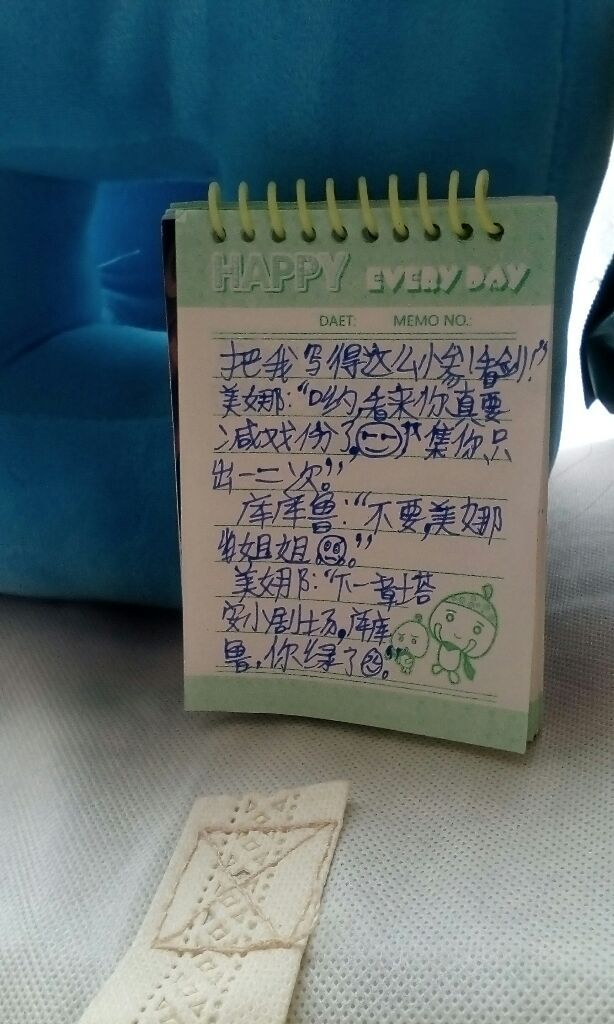 HAPPY EVERY DAY
DAET: MEMO NO.:
把我写得这么小参(看剑!”
美娜:“哟,看来你真要
减戏份了,”集你只
出一二次。”
库库鲁:“不要,美娜
姐姐。”
美娜:“下一章塔
安小剧场,库库
鲁,你绿了。”